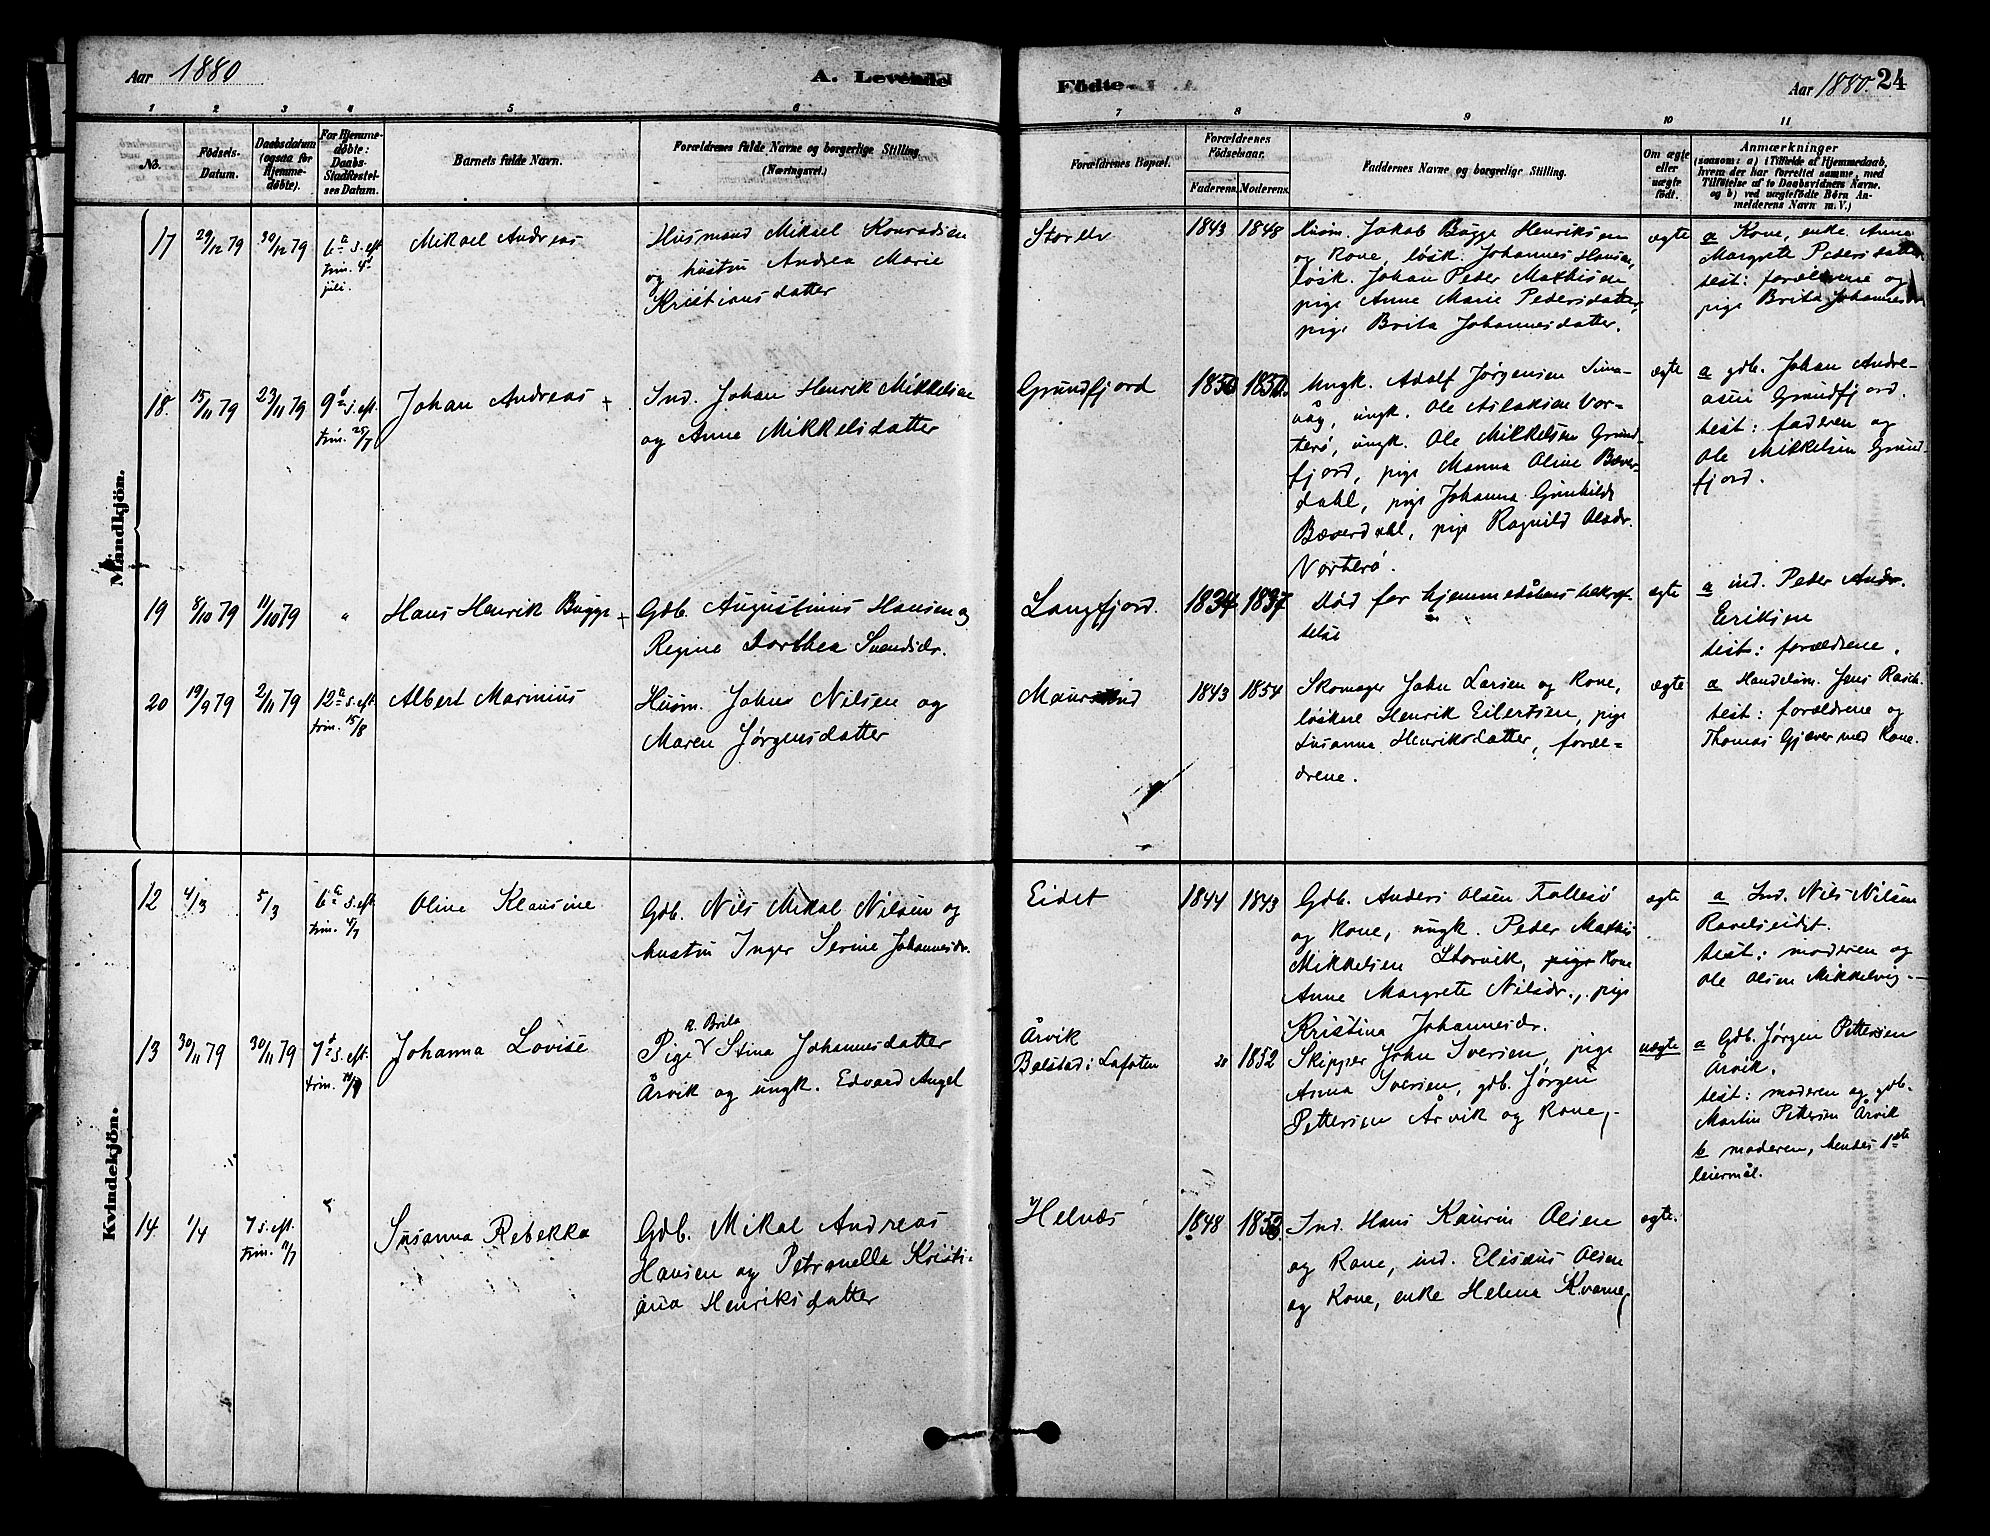 Aar 1880
A. Levende
Fødte.
Aar 1880. 24
1 2 3 4 5 6 7 8 9 10 11
No.
Fødsels-
Datum.
Daabsdatum
(ogsaa for
Hjemme-
døbte).
For Hjemme-
døbte:
Daabs-
Stadfæstel-
ses Datum.
Barnets fulde Navn.
Forældrenes fulde Navne og borgerlige Stilling.
(Næringsvei.)
Forældrenes Bopæl.
Forældrenes
Fødselsaar.
Faderens. Moderens.
Faddernes Navne og borgerlige Stilling.
Om ægte
eller
uægte
født.
Anmærkninger
(saasom: a) i Tilfælde af Hjemmedaab,
hvem der har forrettet samme, med
Tilføielse af to Daabsvidners Navne.
og b) ved uægtefødte Børn An-
melderens Navn m. V.)
Mandkjön.
17
29/12 79
30/12 79
6te s. eft.
trin. 4d
juli.
Mikael Andreas
Husmand Mikael Konradsen
og hustru Andrea Marie
Kristiansdatter
Storelv
1843 1848
Husm. Jakob Bugge Henriksen
og Kone, løsk. Johannes Hansen,
løsk. Johan Peder Mathisen
pige Anne Marie Pedersdatter,
pige Brita Johannesdatter.
ægte
a Kone, enke Anne
Margrete Pedersdatter
test: forældrene og
pige Brita Johannesdr
18.
15/11 79
23/11 79
9d s. eft.
trin. 25/7
Johan Andreas +
Ind. Johan Henrik Mikkelsen
og Anne Mikkelsdatter
Grundfjord
1850 1850
Ungk. Adolf Jørgensen Sima-
våg, ungk. Ole Aslaksen Vor-
terø, ungk. Ole Mikkelsen Grund-
fjord, pige Manna Oline Bæver-
dahl, pige Johanna Gunhilde
Bæverdahl, pige Ragnild Olsdr.
Vorterø.
ægte
a gdb. Johan Andre-
asen Grundfjord.
test: faderen og
Ole Mikkelsen Grund
fjord.
19
8/10 79
11/10 79
"
Hans Henrik Bugge +
Gdb. Augustinus Hansen og
Regine Dorthea Svendsdr.
Langfjord.
1834 1837
Død før hjemmedåbens bekræf-
telse
ægte
a ind. Peder Andr.
Eriksen
test: forældrene.
20
19/9 79
2/11 79
12te s. eft.
trin. 15/8
Albert Marinius
Husm. Johns Nilsen og
Maren Jørgensdatter
Maursund
1843 1854
Skomager John Larsen og Kone,
løskone Henrik Eilertsen, pige
Susanna Henriksdatter, foræl-
drene.
ægte
a Handelsm. Jens Rasch
test: forældrene og
Thomas Gjæver med Kone.
Kvindekjön.
12
4/3
5/3
6te s. eft.
trin. 4/7
Oline Klausine
Gdb. Nils Mikal Nilsen og
hustru Inger Serine Johannesdr.
Eidet
1844 1843
Gdb. Anders Olsen Follesø
og Kone, ungk. Peder Mathis
Mikkelsen Storvik, pige Kone
Anne Margrete Nilsdr., pige
Kristina Johannesdr.
ægte
a Ind. Nils Nilsen
Ravelseidet.
test: moderen og
Ole Olsen Mikkelvig.
13
30/11 79
30/11 79
7d s. eft.
trin. 11/7
Johanna Lovise
R. Brita
Pige Stina Johannesdatter
Årvik og ungk. Edvard Angel
Årvik
Balstad i Lofoten
1852
Skipper John Iversen, pige
Anna Iversen, gdb. Jørgen
Pettersen Årvik og Kone.
uægte
a Gdb. Jørgen Pettersen
Årvik.
test: moderen og gdb.
Martin Pettersen Årvik
b moderen, hendes 1ste
leiermål.
14.
1/4
7 s. eft.
trin. 11/7
"
Susanna Rebekka
Gdb. Mikal Andreas
Hansen og Petronelle Kristi-
ana Henriksdatter
Helnæs
1848 1853
Ind. Hans Kaurin Olsen
og Kone, ind. Elisæus Olsen
og Kone, enke Helena Kvænne,
ægte.